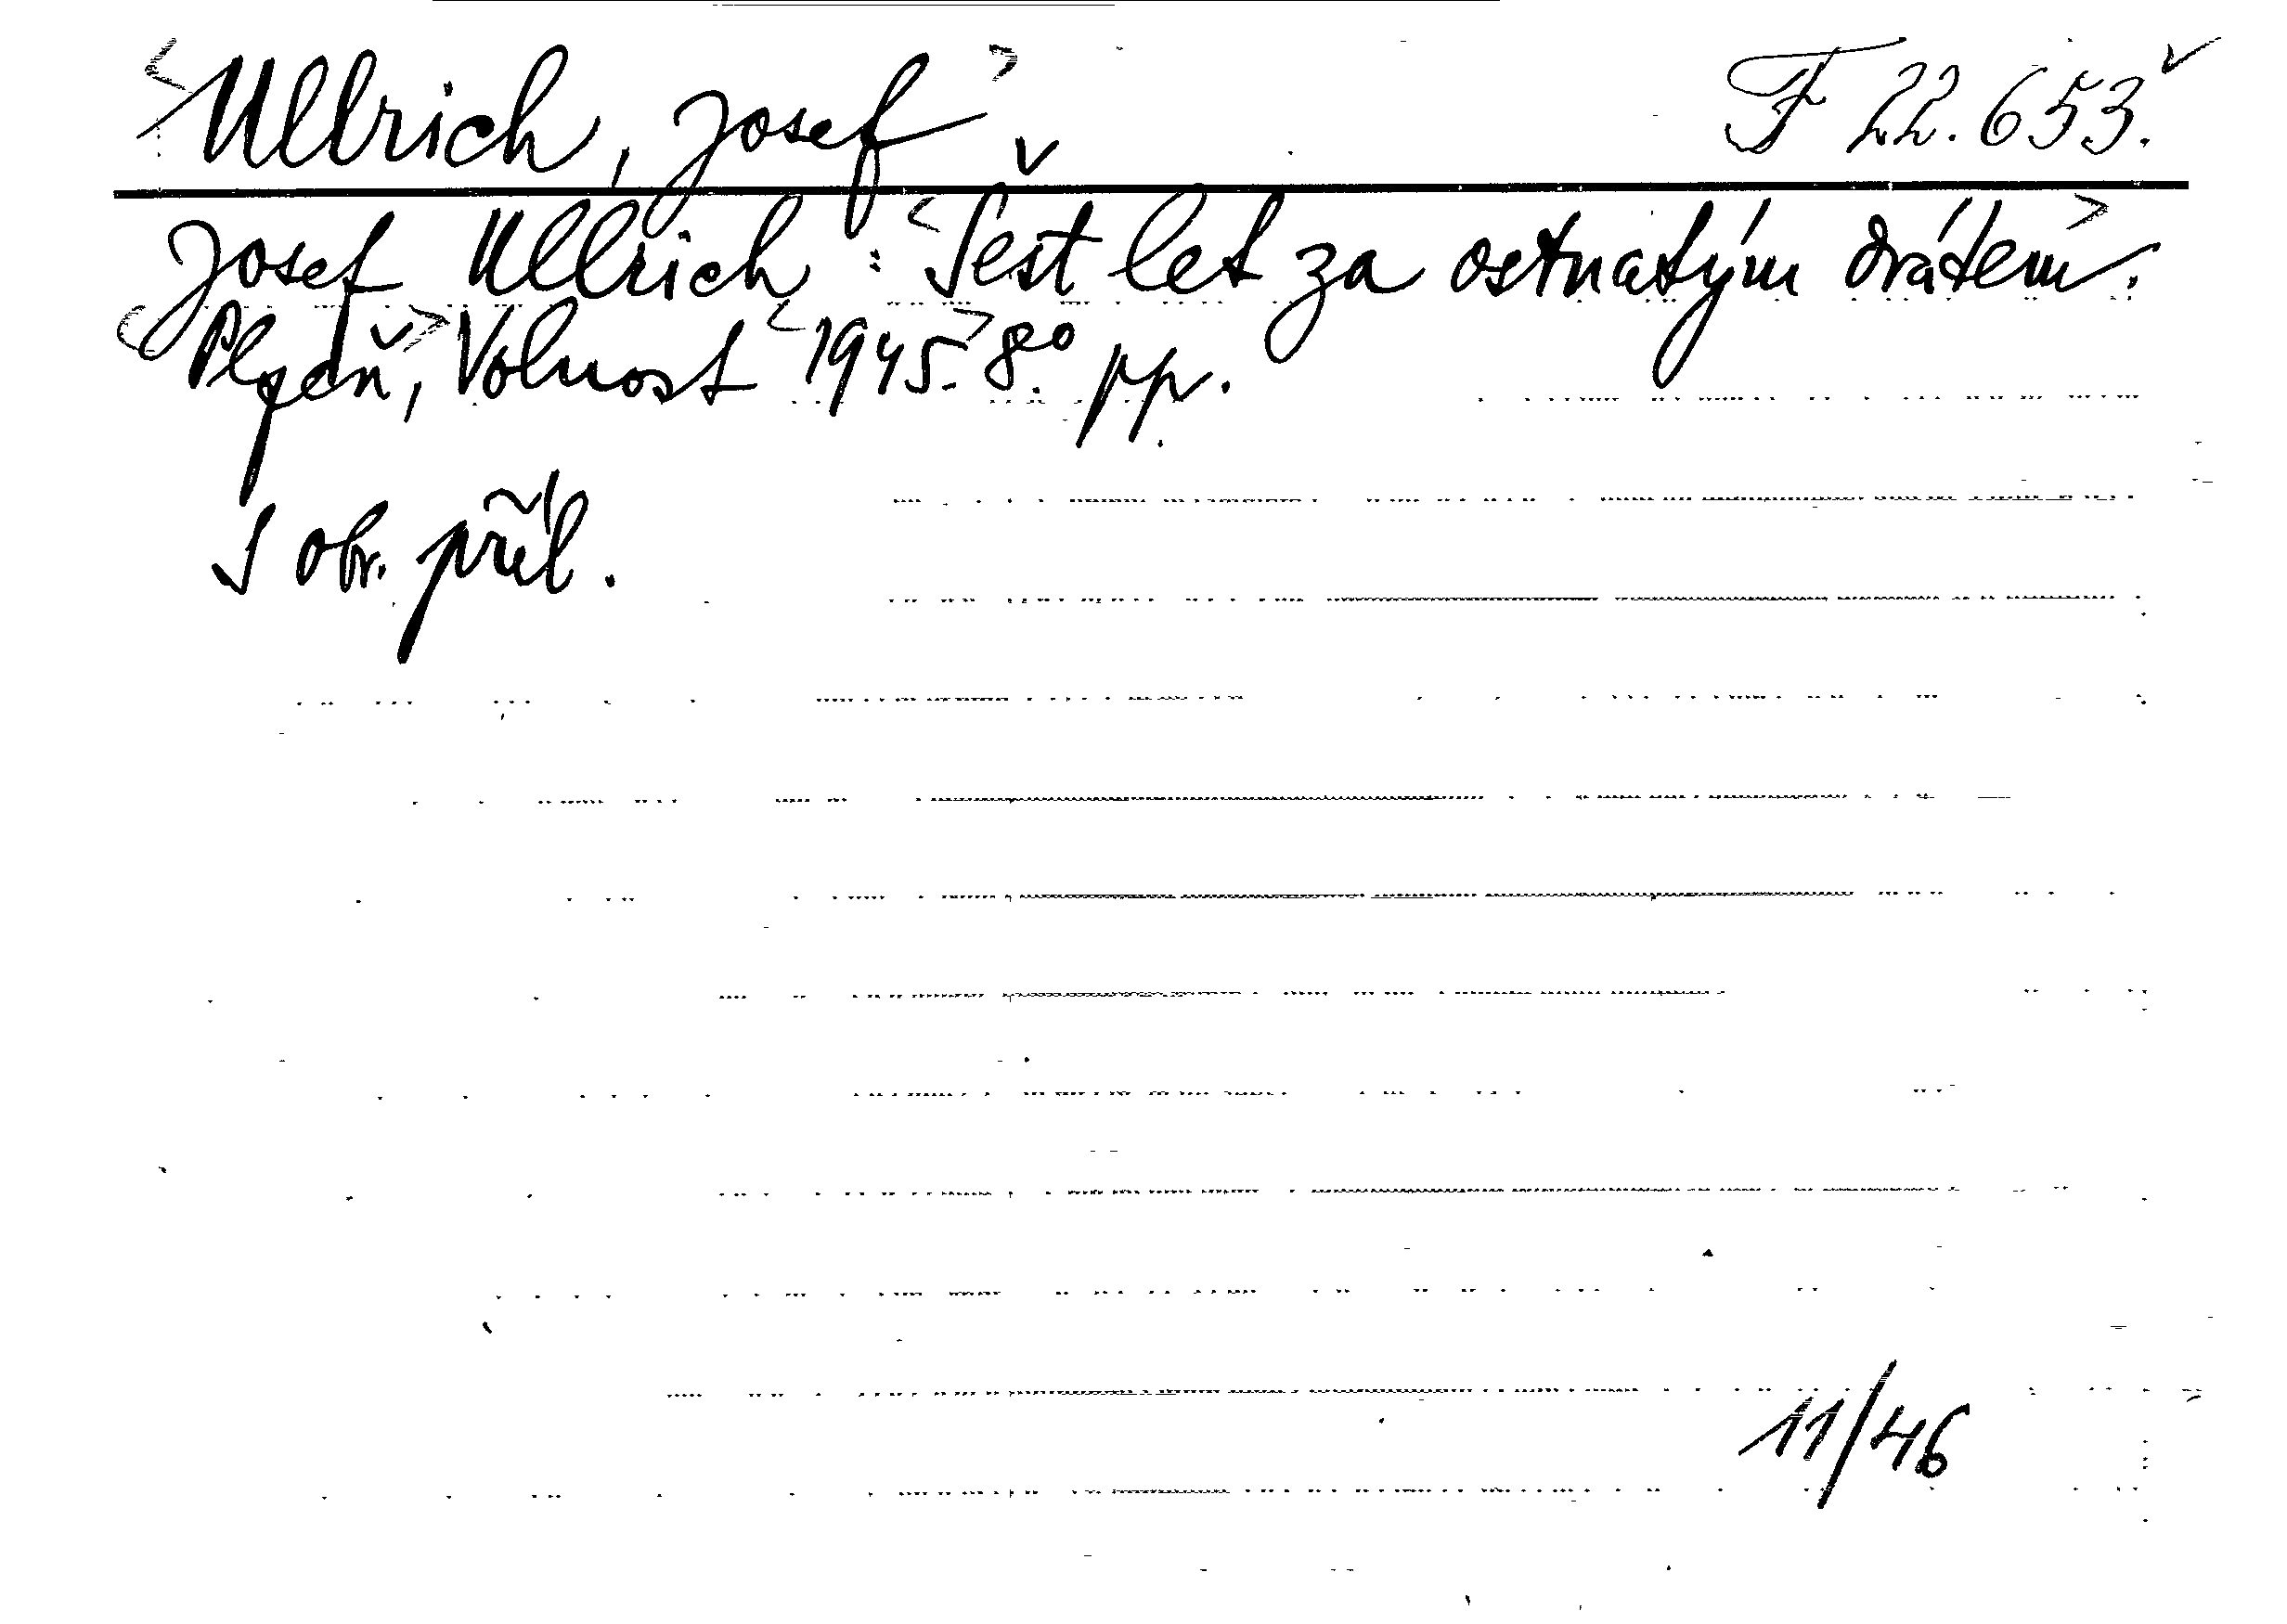 <Ullrich, Josef> F 22.653.
Josef Ullrich: <Šest let za ostnatým drátem>.
<Plzeň,> Volnost <1945.> 8° pp.
S obr. příl.
11/46